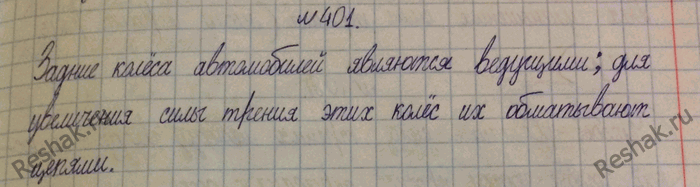 №401.
Задние колёса автомобилей являются ведущими; для
увеличения силы трения этих колёс их обматывают
цепями.
Reshak.ru
Reshak.ru